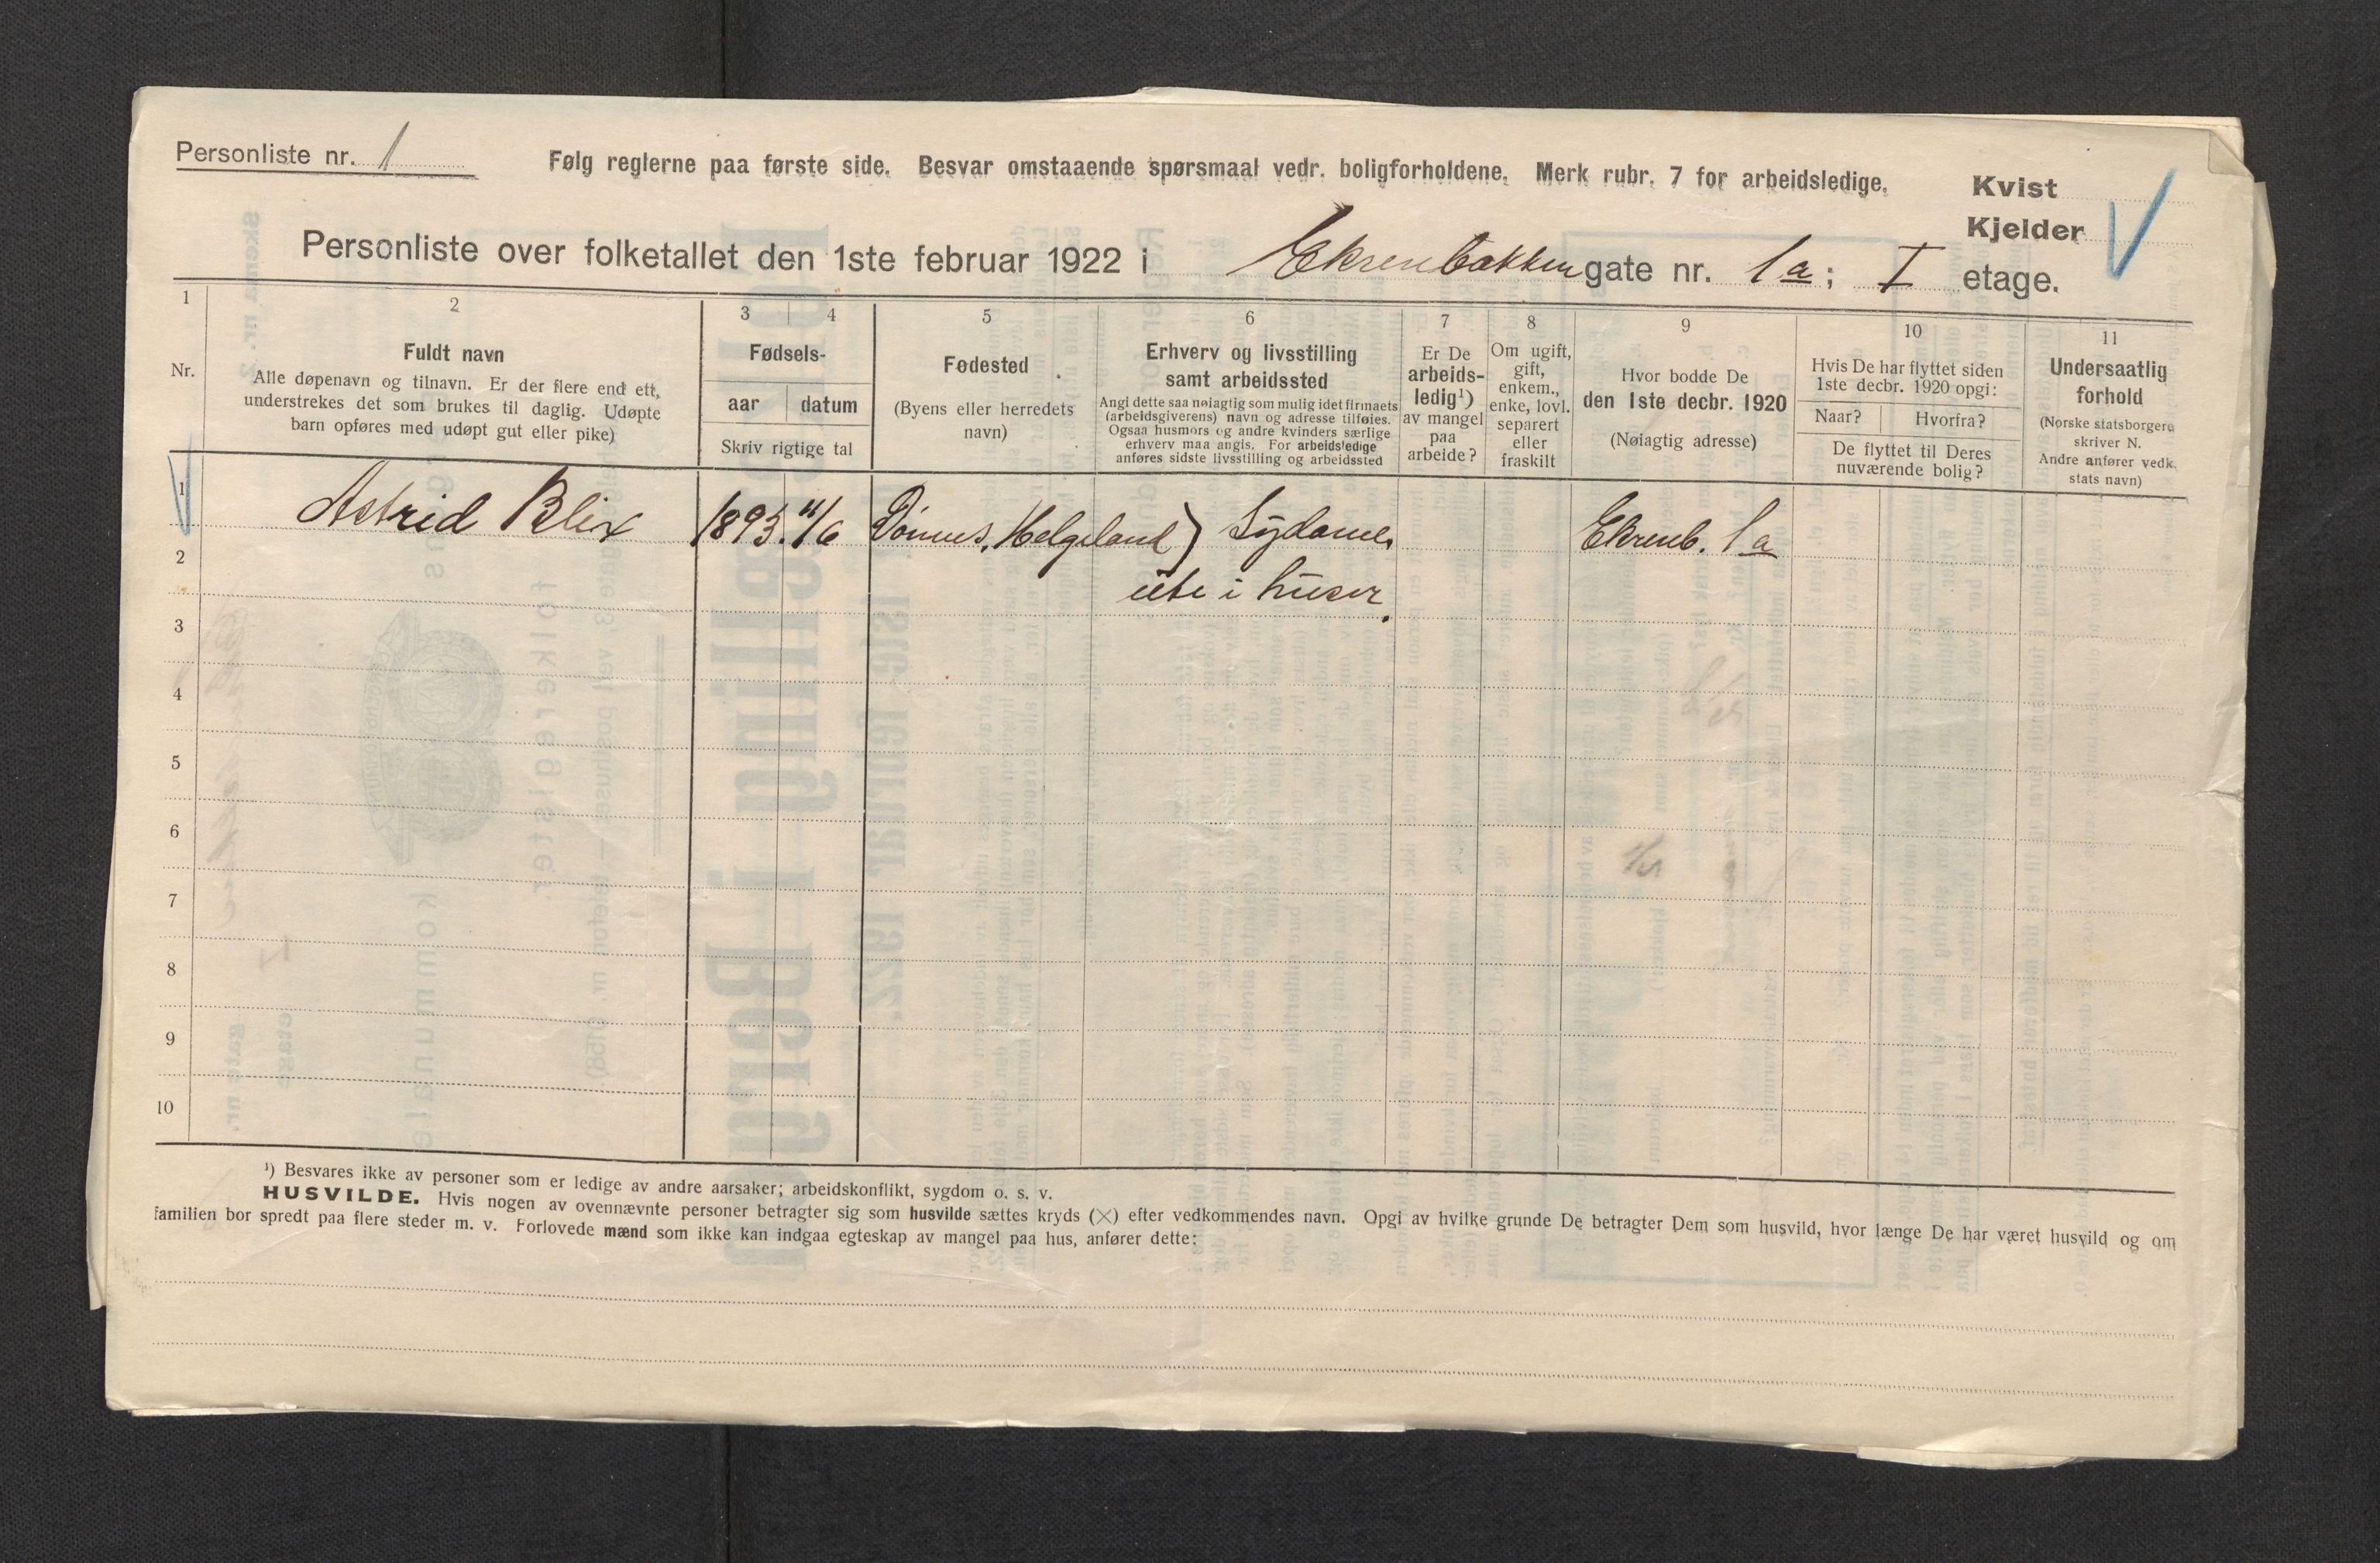 Personliste nr. 1
Følg reglerne paa første side. Besvar omstaaende spørsmaal vedr. boligforholdene. Merk rubr. 7 for arbeidsledige.
Kvist
Kjelder
Personliste over folketallet den 1ste februar 1922 i Ekrenbakken gate nr. 1a; I etage.
1 2 3 4 5 6 7 8 9 10 11
Nr.
Fuldt navn
Alle døpenavn og tilnavn. Er der flere end ett,
understrekes det som brukes til daglig. Udøpte
barn opføres med udøpt gut eller pike)
Fødsels-
aar datum
Skriv rigtige tal
Fødested
(Byens eller herredets
navn)
Erhverv og livsstilling
samt arbeidssted
Angi dette saa nøiagtig som mulig idet firmaets
(arbeidsgiverens) navn og adresse tilføies.
Ogsaa husmors og andre kvinders særlige
erhverv maa angis. For arbeidsledige
anføres sidste livsstilling og arbeidssted
Er De
arbeids-
ledig¹)
av mangel
paa
arbeide?
Om ugift,
gift,
enkem.,
enke, lovl.
separert
eller
fraskilt
Hvor bodde De
den 1ste decbr. 1920
(Nøiagtig adresse)
Hvis De har flyttet siden
1ste decbr. 1920 opgi:
Naar? Hvorfra?
De flyttet til Deres
nuværende bolig?
Undersaatlig
forhold
(Norske statsborgere
skriver N.
Andre anfører vedk.
stats navn)
1 Astrid Blix 1893. 11/6 Dønnes, Helgeland) Sydame, Ekrenb. 1a
2 ute i huser.
3
4
5
6
7
8
9
10
¹) Besvares ikke av personer som er ledige av andre aarsaker; arbeidskonflikt, sygdom o. s. v.
HUSVILDE. Hvis nogen av ovennævnte personer betragter sig som husvilde sættes kryds (×) efter vedkommendes navn. Opgi av hvilke grunde De betragter Dem som husvild, hvor længe De har været husvild og om
familien bor spredt paa flere steder m. v. Forlovede mænd som ikke kan indgaa egteskap av mangel paa hus, anfører dette: